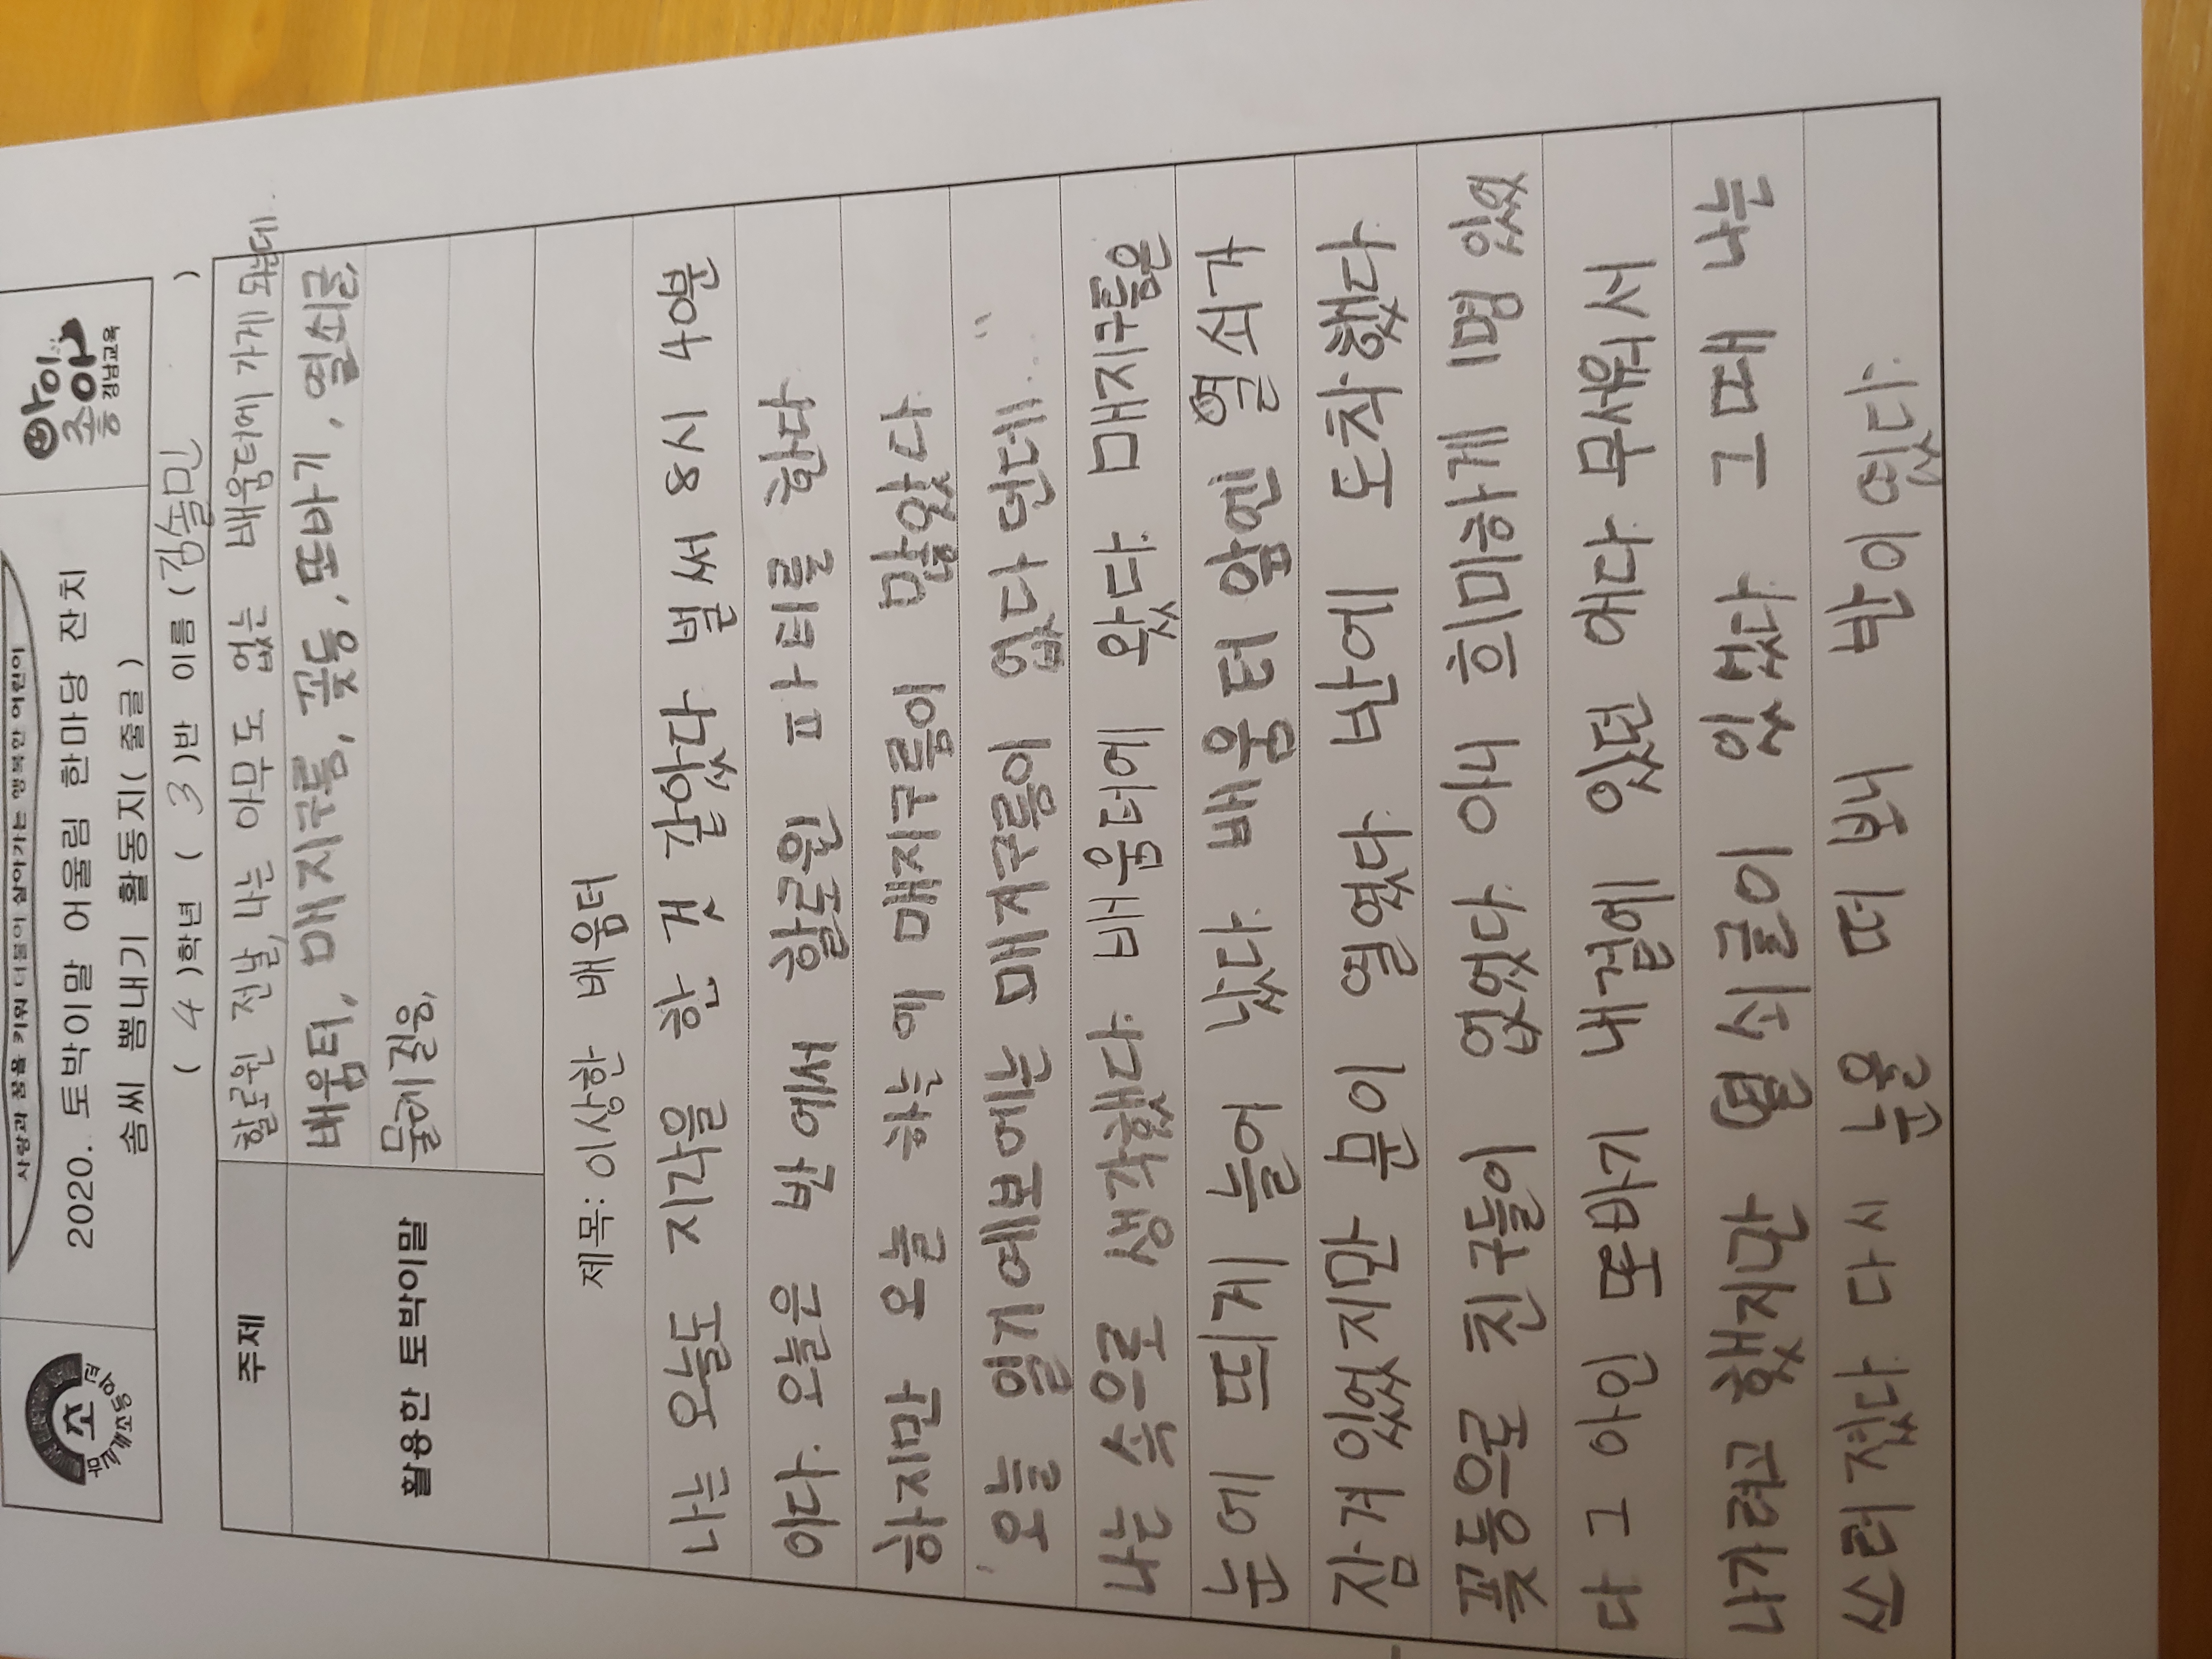 사랑과 꿈을 키워 더불어 살아가는 행복한 어린이
2020. 토박이말 어울림 한마당 잔치
솜씨 뽐내기 활동지( 줄글 )
아이
좋아
경남교육
( 4 )학년 ( 3 )반 이름 ( 김솔민 )
주제
할로윈 전날, 나는 아무도 없는 배움터에 가게 되는데..
활용한 토박이말
배움터, 매지구름, 꽃등, 또바기, 열쇠글,
물레걸음,
제목: 이상한 배움터
나는 오늘도 지각을 한 것 같았다 벌써 8시 40분
이다. 오늘은 반에서 할로윈 파티를 한다
하지만 오늘 하늘에 매지구름이 많았다.
'오늘 일기예보에는 매지구름이 없다던데...''
나는 속으로 생각했다. 배움터에 왔다. 매지구름은
눈에 띄게 늘어 났다. 배움터 앞엔 열쇠가
잠겨있었지만 문이 열렸다. 반에 도착했다.
꽃등으로 친구들이 없었다. 아니 희미하게 1명 있었
다 그 아인 또바기 내곁에 있던 애다. 무서워서
나가려고 했지만 열쇠글이 있었다. 그 때 나는
쓰러졌다 다시 눈을 떠 보니 밖이였다.